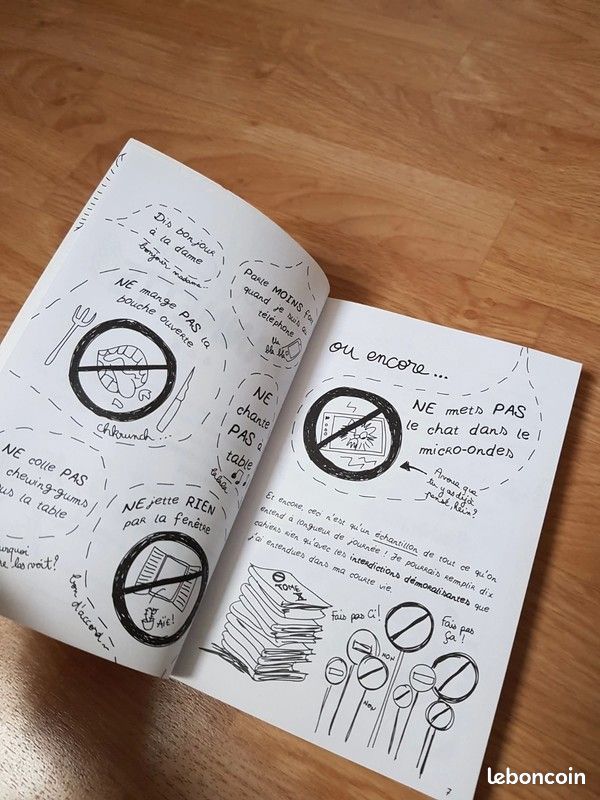 Dis bonjour
à la dame
Bonjour madame
Parle MOINS fort
quand je suis au
téléphone
bla bla
NE mange PAS la
bouche ouverte
chkrunch...
NE
chante
PAS à
table
lalala
NE colle PAS
chewing-gums
sous la table
les voit?
NE jette RIEN
par la fenêtre
AÏE!
bon d'accord...
ou encore...
NE mets PAS
le chat dans le
micro-ondes
Avoue que
tu y as déjà
pensé, hein?
Et encore, ceci n'est qu'un échantillon de tout ce qu'on
entend à longueur de journée! Je pourrais remplir dix
cahiers rien qu'avec les interdictions démoralisantes que
j'ai entendues dans ma courte vie.
TOME
Fais pas ci!
Fais pas
ça!
NON
NON
7
leboncoin